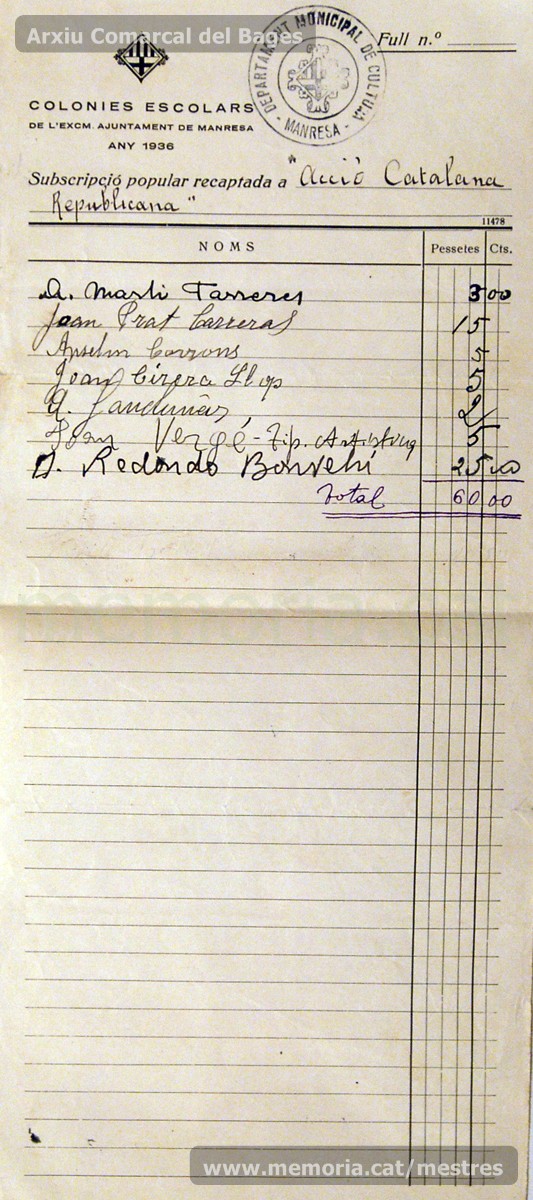 Arxiu Comarcal del Bages
DEPARTAMENT MUNICIPAL DE CULTURA - MANRESA -
Full n.º
COLONIES ESCOLARS
DE L'EXCM. AJUNTAMENT DE MANRESA
ANY 1936
Subscripció popular recaptada a "Acció Catalana
Republicana"
11478
NOMS Pessetes Cts.
A. Marti Tarreres 3 00
Joan Prat Carreras 15
Anselm Corrons 5
Joan Cirera Llop 5
A. 2
Joan Vergé - Tip. 5
D. Redondo Bonvehí 25 00
Total 60 00
www.memoria.cat/mestres